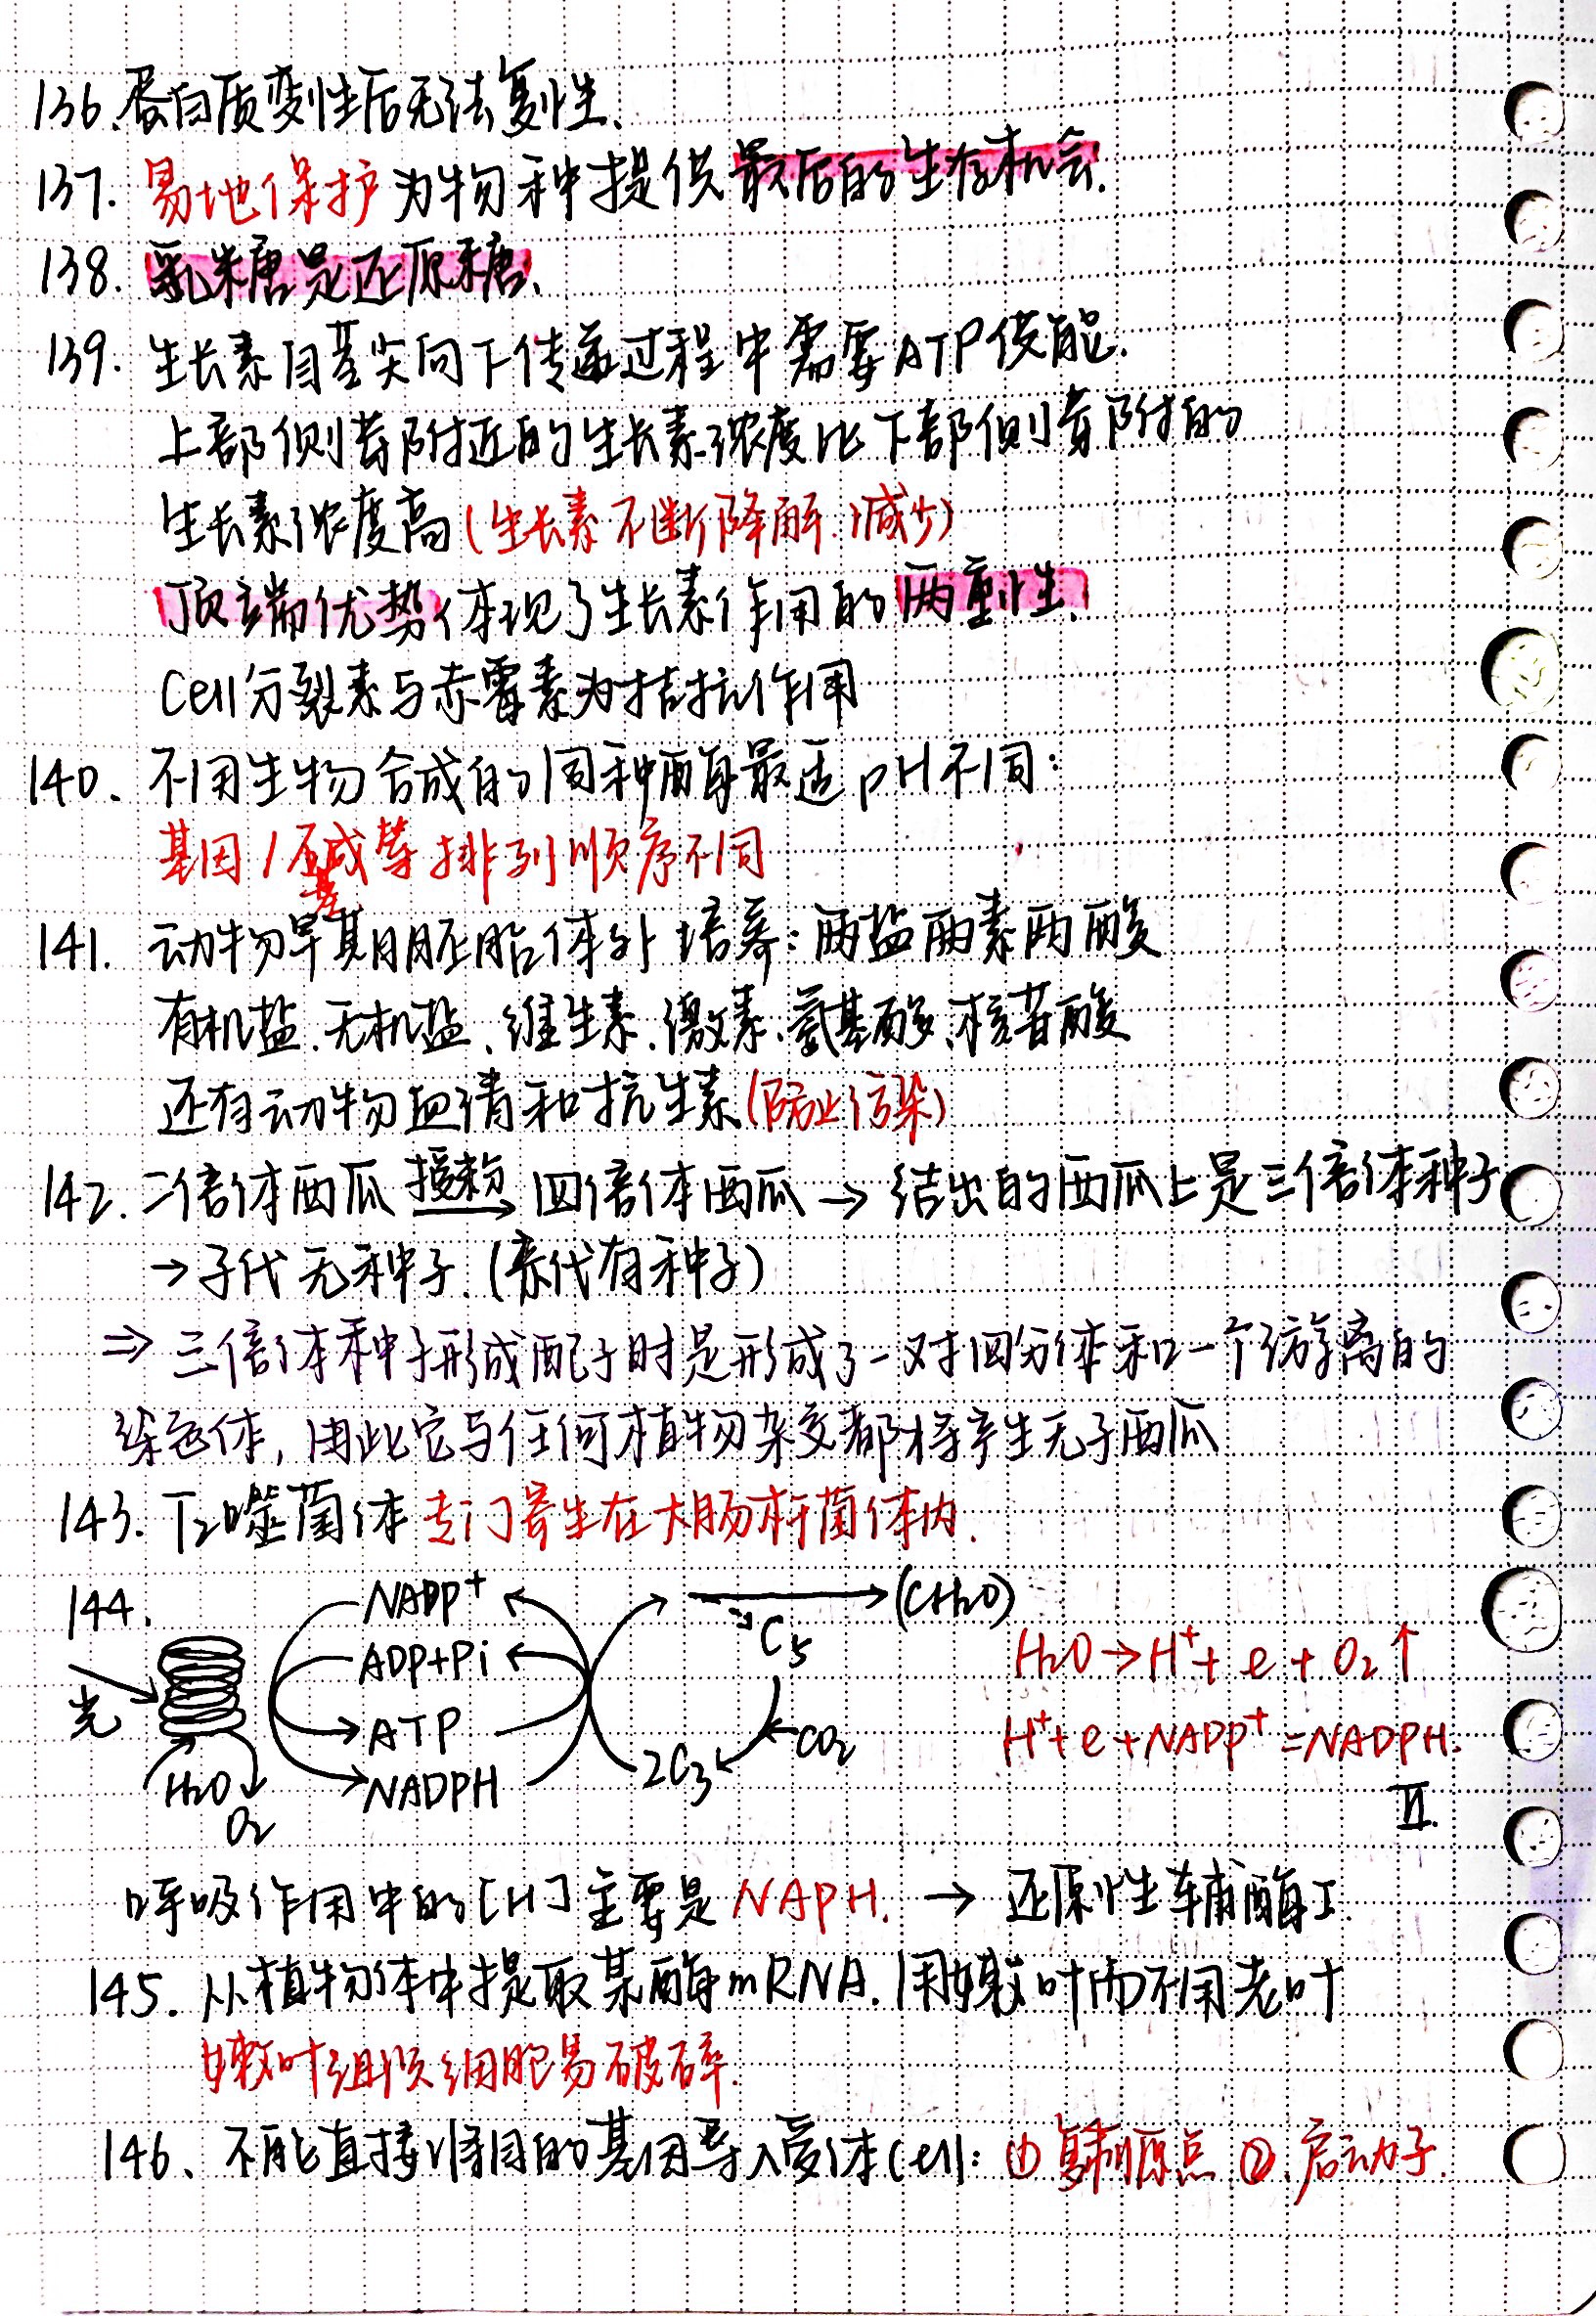 136、蛋白质变性后无法复性、
137. 易地保护为物种提供最后的生存机会.
138. 乳糖是还原糖、
139. 生长素自茎尖向下传递过程中需要ATP供能.
上部侧芽附近的生长素浓度比下部侧芽附的
生长素浓度高(生长素不断降解、减少)
顶端优势体现了生长素作用的两重性、
Cell分裂素与赤霉素为拮抗作用
140、不同生物合成的同种酶最适pH不同:
基因/碱基等排列顺序不同
141. 动物早期胚胎体外培养:两盐两素两酸
有机盐、无机盐、维生素、激素、氨基酸、核苷酸
还有动物血清和抗生素(防止污染)
142. 二倍体西瓜 授粉→ 四倍体西瓜 → 结出的西瓜上是三倍体种子
→子代无种子.(亲代有种子)
⇒ 三倍体种子形成配子时是形成了一对四分体和一个游离的
染色体,因此它与任何植物杂交都将产生无子西瓜
143. T2噬菌体专门寄生在大肠杆菌体内.
144.
光
H2O
O2
NADP+
ADP+Pi
ATP
NADPH
2C3
C5
CO2
(CH2O)
H2O→H+ + e + O2↑
H+ + e + NADP+ = NADPH.
II.
呼吸作用中的[H]主要是NAPH. → 还原性辅酶I
145. 从植物体中提取某酶mRNA.用嫩叶而不用老叶
嫩叶组织细胞易破碎.
146、不能直接将目的基因导入受体Cell: ①复制原点 ②.启动子.